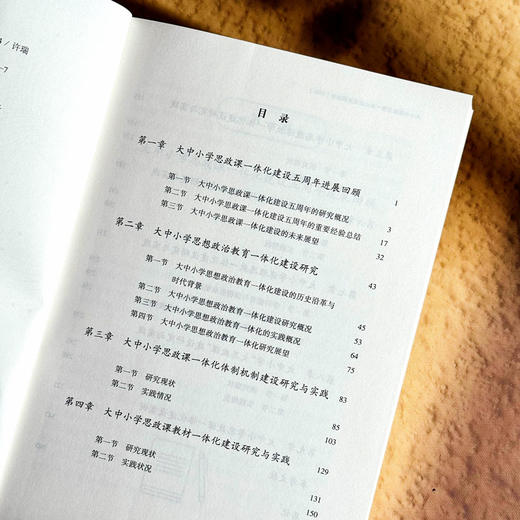 / 许瑞
-7
目 录
第一章 大中小学思政课一体化建设五周年进展回顾 1
第一节 大中小学思政课一体化建设五周年的研究概况 3
第二节 大中小学思政课一体化建设五周年的重要经验总结 17
第三节 大中小学思政课一体化建设的未来展望 32
第二章 大中小学思想政治教育一体化建设研究 43
第一节 大中小学思想政治教育一体化建设的历史沿革与
时代背景 45
第二节 大中小学思想政治教育一体化建设研究概况 53
第三节 大中小学思想政治教育一体化的实践概况 64
第四节 大中小学思想政治教育一体化研究展望 75
第三章 大中小学思政课一体化体制机制建设研究与实践 83
第一节 研究现状 85
第二节 实践情况 103
第四章 大中小学思政课教材一体化建设研究与实践 129
第一节 研究现状 131
第二节 实践状况 150